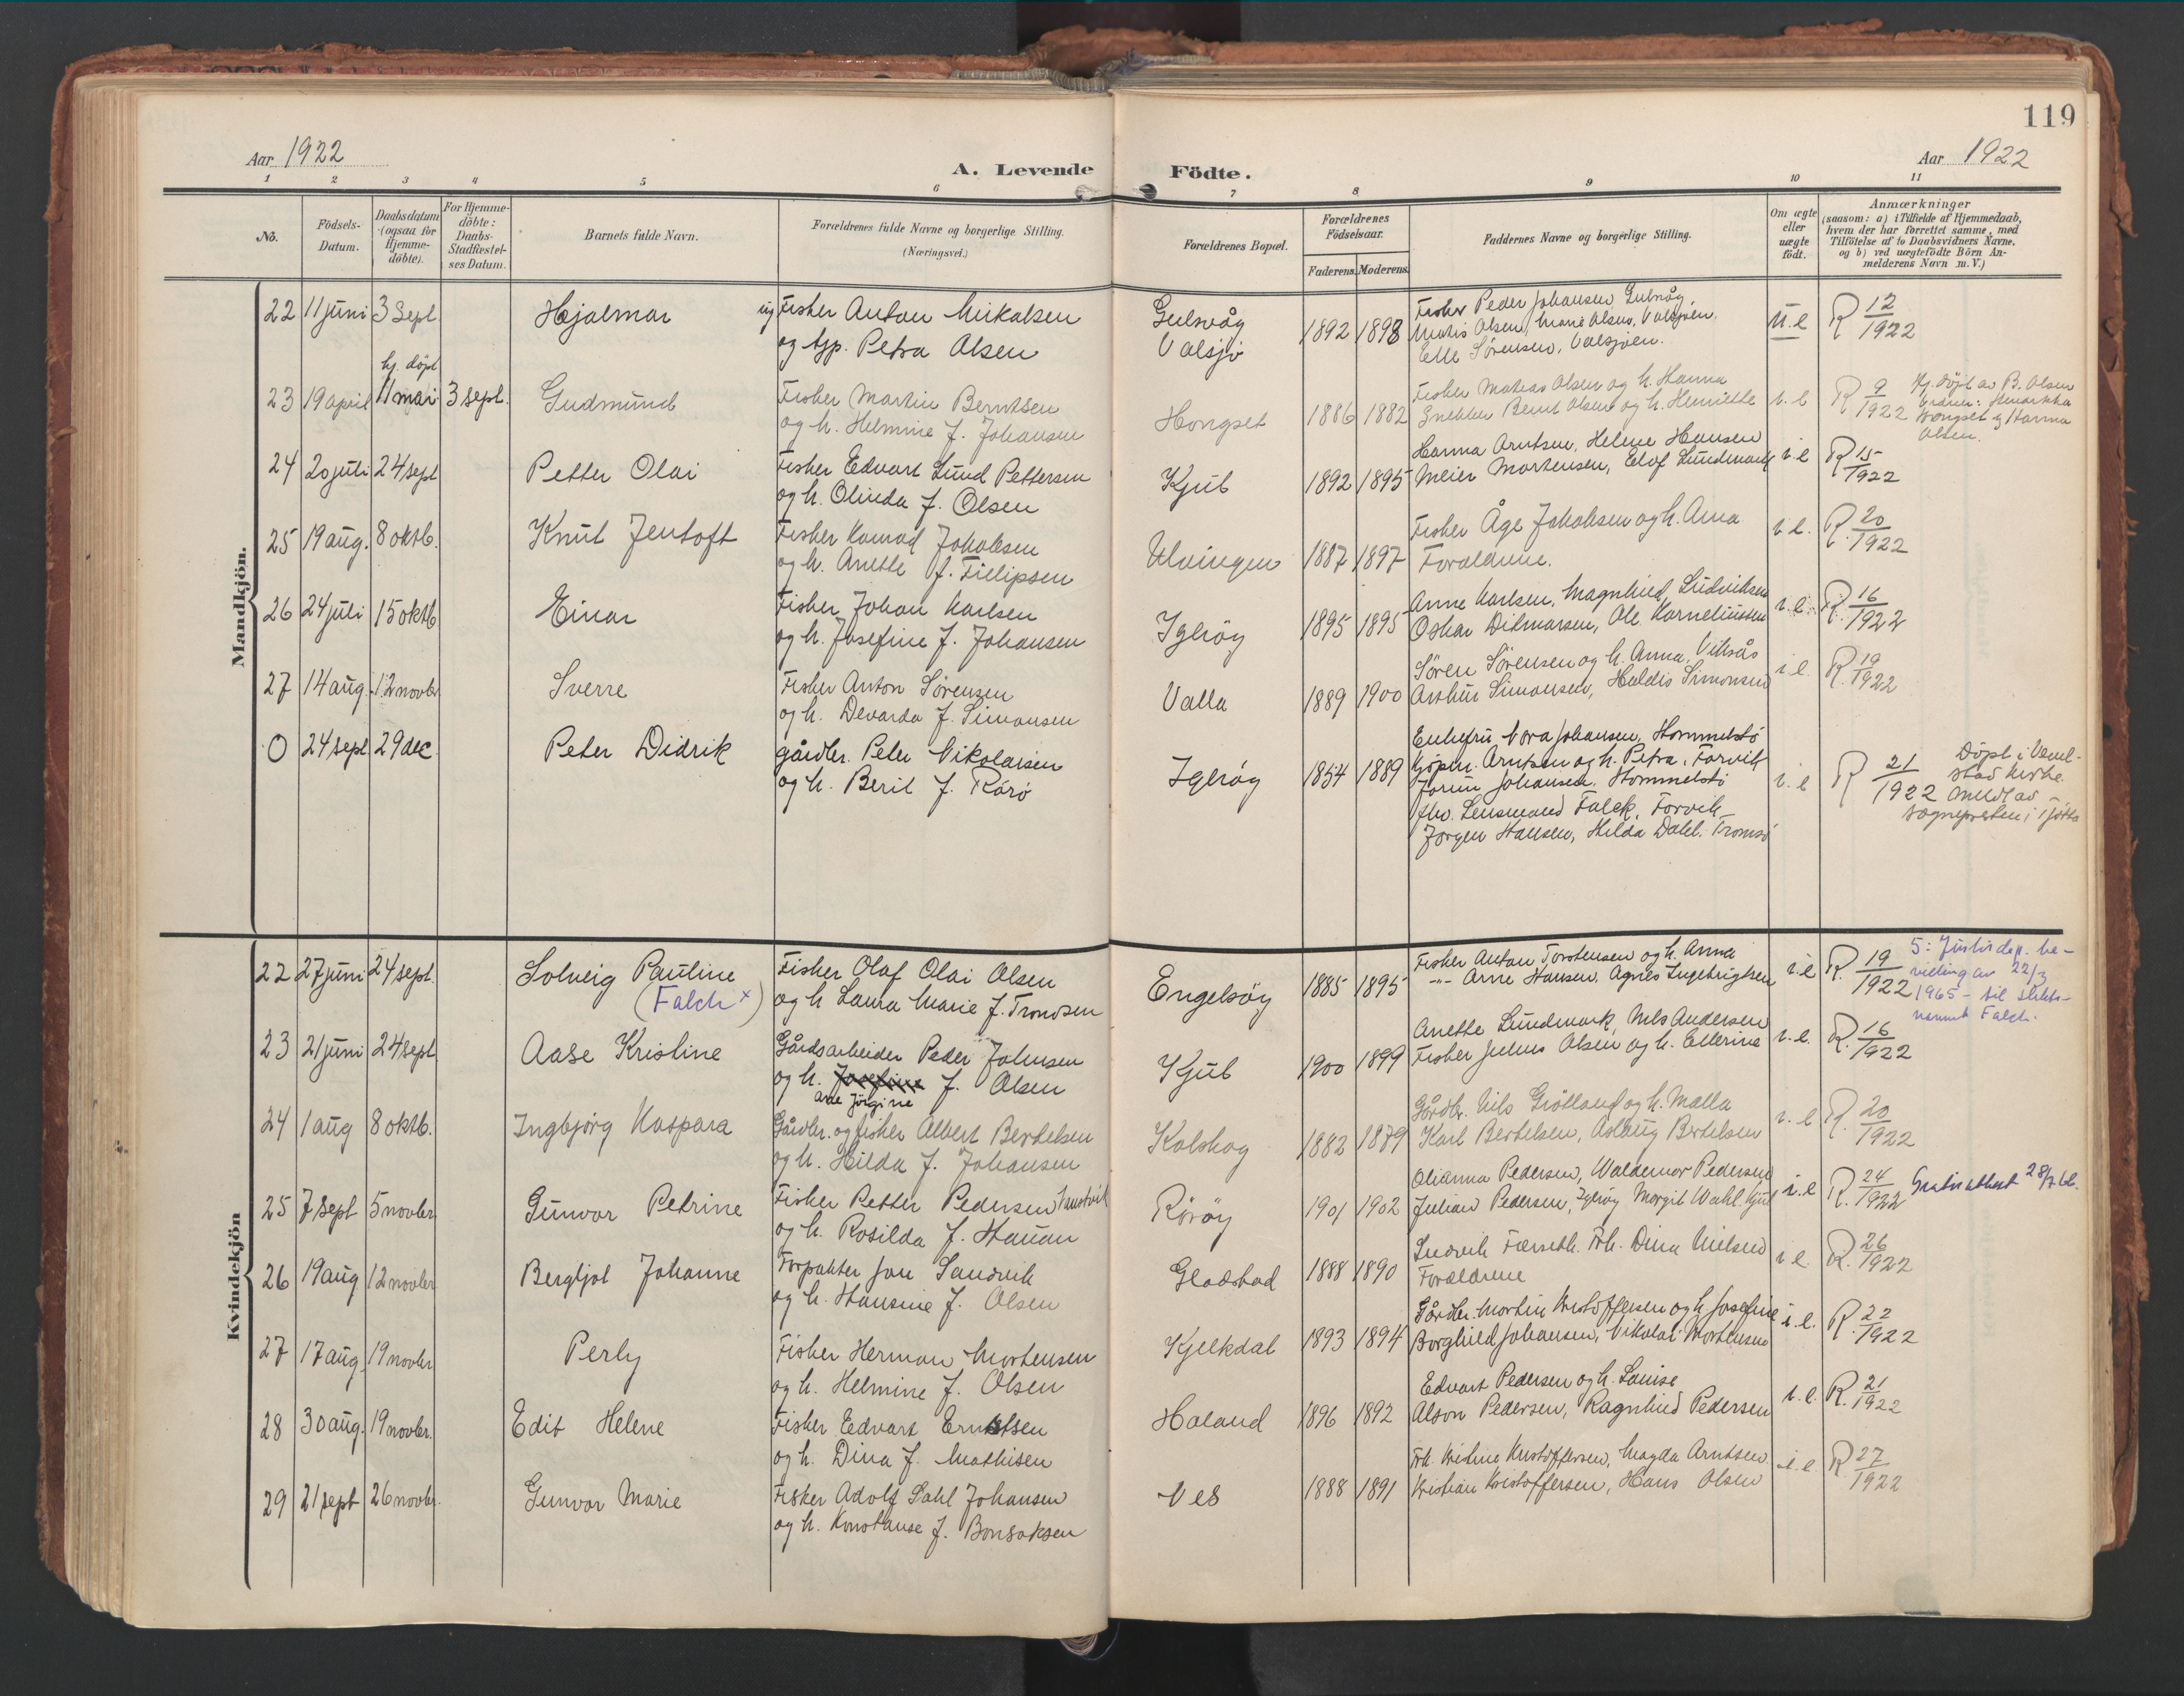 119
Aar 1922
A. Levende
Födte.
Aar 1922
1 2 3 4 5 6 7 8 9 10 11
No.
Födsels-
Datum.
Daabsdatum
(ogsaa for
Hjemme-
döbte).
For Hjemme-
döbte:
Daabs-
Stadfæstel-
ses Datum.
Barnets fulde Navn.
Forældrenes fulde Navne og borgerlige Stilling.
(Næringsvei.)
Forældrenes Bopæl.
Forældrenes
Födselsaar.
Faderens. Moderens.
Faddernes Navne og borgerlige Stilling.
Om ægte
eller
uægte
födt.
Anmærkninger
(saasom: a) i Tilfælde af Hjemmedaab,
hvem der har forrettet samme, med
Tilföielse af to Daabsvidners Navne,
og b) ved uægtefödte Börn An-
melderens Navn m.V.)
Mandkjön.
22 11 juni 3 Sept. Hjalmar ug Fisker Anton Mikalsen
og tjp. Petra Olsen
Gulsvåg
Valsjö
1892 1898
Fisker Peder Johansen Gulsvåg,
Mathis Olsen, Marie Olsen, Valsjöen
Elle Sørensen, Valsjöen.
u.e R 12/1922
hj. döpt
23 19 april 11 mai 3 sept. Gudmund Fisker Martin Berntsen
og h. Helmine f. Johansen
Hongset 1886 1882
Fisker Mathias Olsen og h. Hanna
Snekker Bernt Olsen og h. Henriette
i.e R 9/1922 Hj. döpt av B. Olsen
Hongset og Hanna
Olsen.
24 20 juli 24 sept Petter Olai Fisker Edvart Lund Pettersen
og h. Olinda f. Olsen
Kjul 1892 1895
Hanna Arntsen, Helene Hansen
Meier Mortensen, Elof Lundmark
i.e R 15/1922
25 19 aug. 8 oktb. Knut Jentoft Fisker Konrad Jakobsen
og h. Anette f. Fillipsen
Ulvingen 1887 1897
Fisker Åge Jakobsen og h. Arna
Foraldrene.
i.e. R. 20/1922
26 24 juli 15 oktb Einar Fisker Johan Karlsen
og h. Josefine f. Johansen
Igeröy 1895 1895
Anne Karlsen, Magnhild Ludviksen
Oskar Ditmarsen, Ole Korneliussen
i.e. R. 16/1922
27 14 aug. 12 novbr Sverre Fisker Anton Sörensen
og h. Devarda f. Simonsen
Valla 1889 1900
Sören Sörensen og h. Anna, Viksås
Arthur Simonsen, Haldis Simonsen
i.e. R. 19/1922
0 24 sept 29 dec. Peter Didrik gårdbr. Peter Nikolaisen
og h. Beril f. Rörö
Igeröy 1854 1889
Enkefru Nora Johansen, Hommelstö
Kjöpm. Arntsen og h. Petra, Forvik
Jorun Johansen, Hommelstö
fhv. Lensmand Falck, Forvik
Jörgen Hansen, Hilda Dahl. Tromsö
i.e R 21/1922 Döpt i Vevel-
stad kirke
anmeldt av
sognepresten i Tjötta
Kvindekjön
22 27 juni 24 sept. Solveig Pauline
(Falch x)
Fisker Olaf Olai Olsen
og h Laura Marie f. Trondsen
Engelsöy 1885 1895
Fisker Anton Torstensen og h. Anna
-"- Arne Hansen, Agnes Ingebrigtsen
i.e R. 19/1922 5: Justisdep. be-
villing av 22/3
1965 - til slekts-
navnet Falch.
23 21 juni 24 sept Aase Kristine Gårdsarbeider Peder Johnsen
og h. Josefine f. Olsen
Ane Jörgine
Kjul 1900 1899
Anette Lundmark, Nels Andersen
Fisker Julius Olsen og h. Ellerine
i.e. R. 16/1922
24 1 aug 8 oktb. Ingbjörg Kaspara Gårdbr. og fisker Albert Bertelsen
og h. Hilda f. Johansen
Kalskag 1882 1879
Gårdbr. Nils Grötland og h. Malla
Karl Bertelsen, Aslaug Bertelsen
i.e R. 20/1922
25 7 sept 5 novbr Gunvor Petrine Fisker Petter Pedersen
og h. Rosilda f. Hauan
Röröy 1901 1902
Olianna Pedersen, Waldemar Pedersen
Julian Pedersen, Igeröy Margit Wahl. Kjul
i.e R. 24/1922
26 19 aug 12 novbr Bergljot Johanne Forpakter Jon Sandvik
og h. Hansine f. Olsen
Gladstad 1888 1890
Ludvik Færseth. Frk. Dina Nielsen
Foraldrene
i.e. R. 26/1922
27 17 aug. 19 novbr Perly Fisker Herman Mortensen
og h. Helmine f. Olsen
Kjelkdal 1893 1894
Gårdbr. Martin Kristoffersen og h. Josefine
Borghild Johansen, Nikolai Mortensen
i.e. R 22/1922
28 30 aug. 19 novbr. Edit Helene Fisker Edvart Erntsen
og h. Dina f. Mathisen
Haland 1896 1892
Edvart Pedersen og h. Louise
Alson Pedersen, Ragnhild Pedersen
i.e. R. 21/1922
29 21 sept 26 novbr. Gunvor Marie Fisker Adolf Dahl Johansen
og h. Konstanse f. Bonsaksen
Ves 1888 1891
Frk. Kristine Kristoffersen, Magda Arntsen
Kristian Kristoffersen, Hans Olsen
i.e R 27/1922